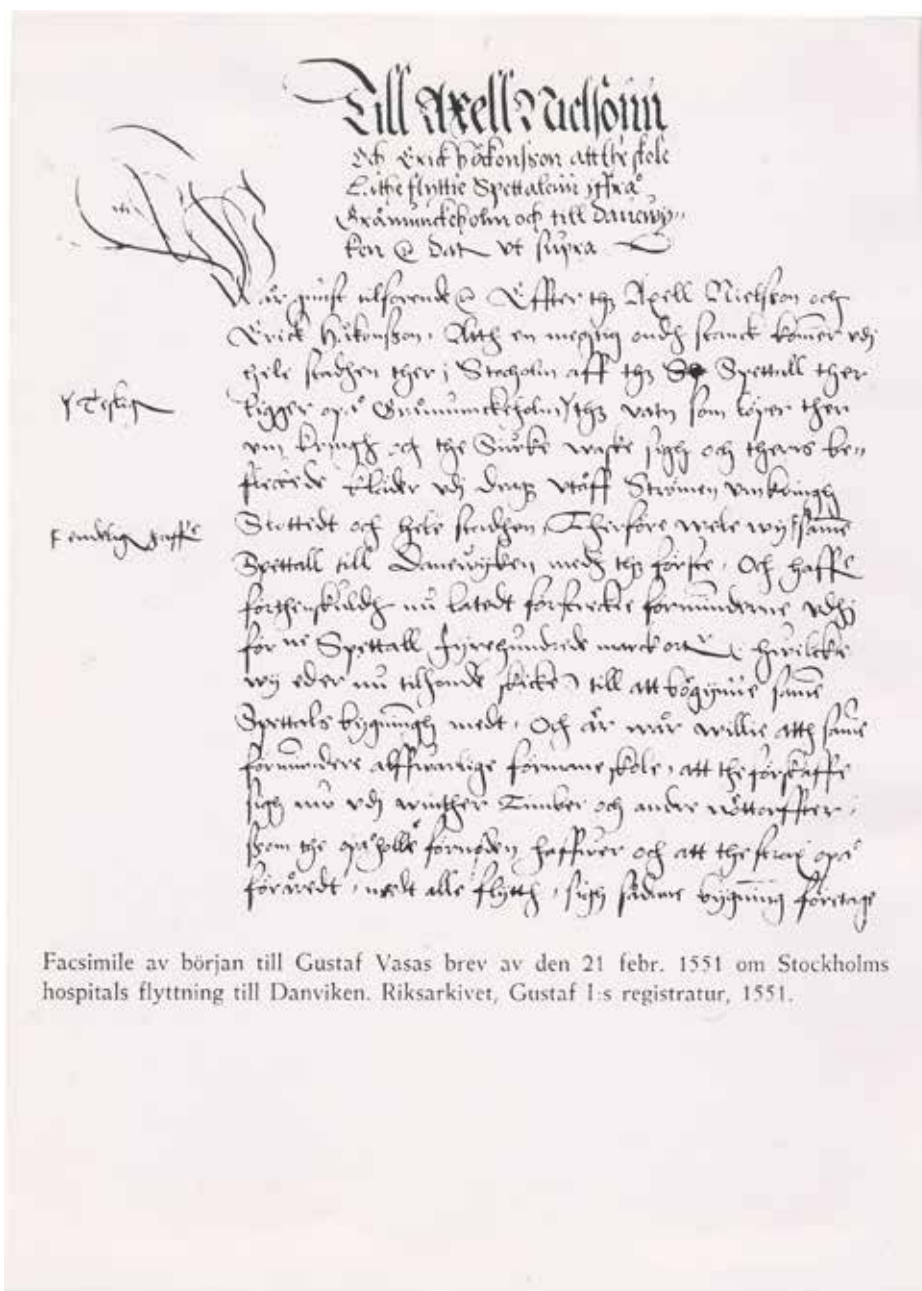 Till Axell Nielsönn
Och Erick håkonsson att the skole
Lathe flyttie Spettalenn ifrå
Gråmunckeholm och till danewy„
ken Dat vt supra
Wår gunst tilforende Effter thz Axell Nielsson och
Erick Håkonsson, Atth en meging ondh stanck komer vdj
hele stadhen ther i Stocholm aff thz Spettall ther
ligger opå Gråmunckeholm thz vatn som löper ther
vm kringh och the Siucke waske sigh och theris be„
fleckede kläder vdj drags vtåff Strömen vmkringh
Slottedt och hele stadhen, Therföre wele wij same
Spettall till Danewijken medh thz förste, Och haffe
forthenskuldh nu latedt forstreckie formunderne vdhj
för:ne Spettall fyrehundrede marck ort hwilcke
wij eder nu tilhande skicke till att bögynne same
Spettals bygningh medt, Och är wår willie atth same
formundere alffwarlige formane skole, att the förskaffe
sigh nu vdj winther Timber och andre nöttorffter,
som the opå holle fornöden haffwer och att the strax opå
föråredt, medt alle flijtth, sigh sådane bygning företage
Teslig
endelig haffe
Facsimile av början till Gustaf Vasas brev av den 21 febr. 1551 om Stockholms
hospitals flyttning till Danviken. Riksarkivet, Gustaf I:s registratur, 1551.